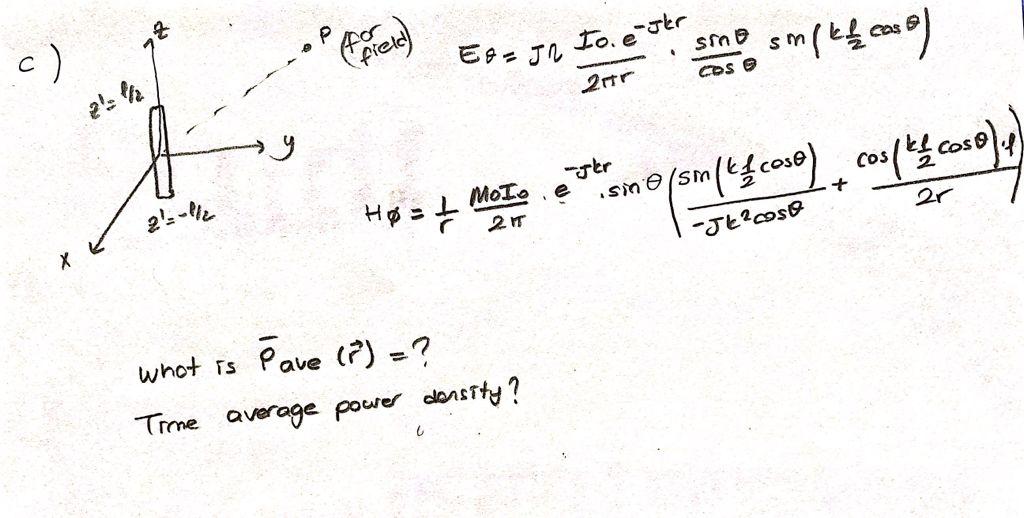 c)
z
z'= l/2
P (far field)
y
z'=-l/2
x
Eθ = Jη Io.e^-Jkr / 2πr . sinθ / cosθ sin(k l/2 cosθ)
Hφ = 1/r MoIo / 2π . e^-Jkr .sinθ (sin(k l/2 cosθ) / -Jk²cosθ + cos(k l/2 cosθ).l / 2r)
what is P̄ave (r⃗) = ?
Time average power density?